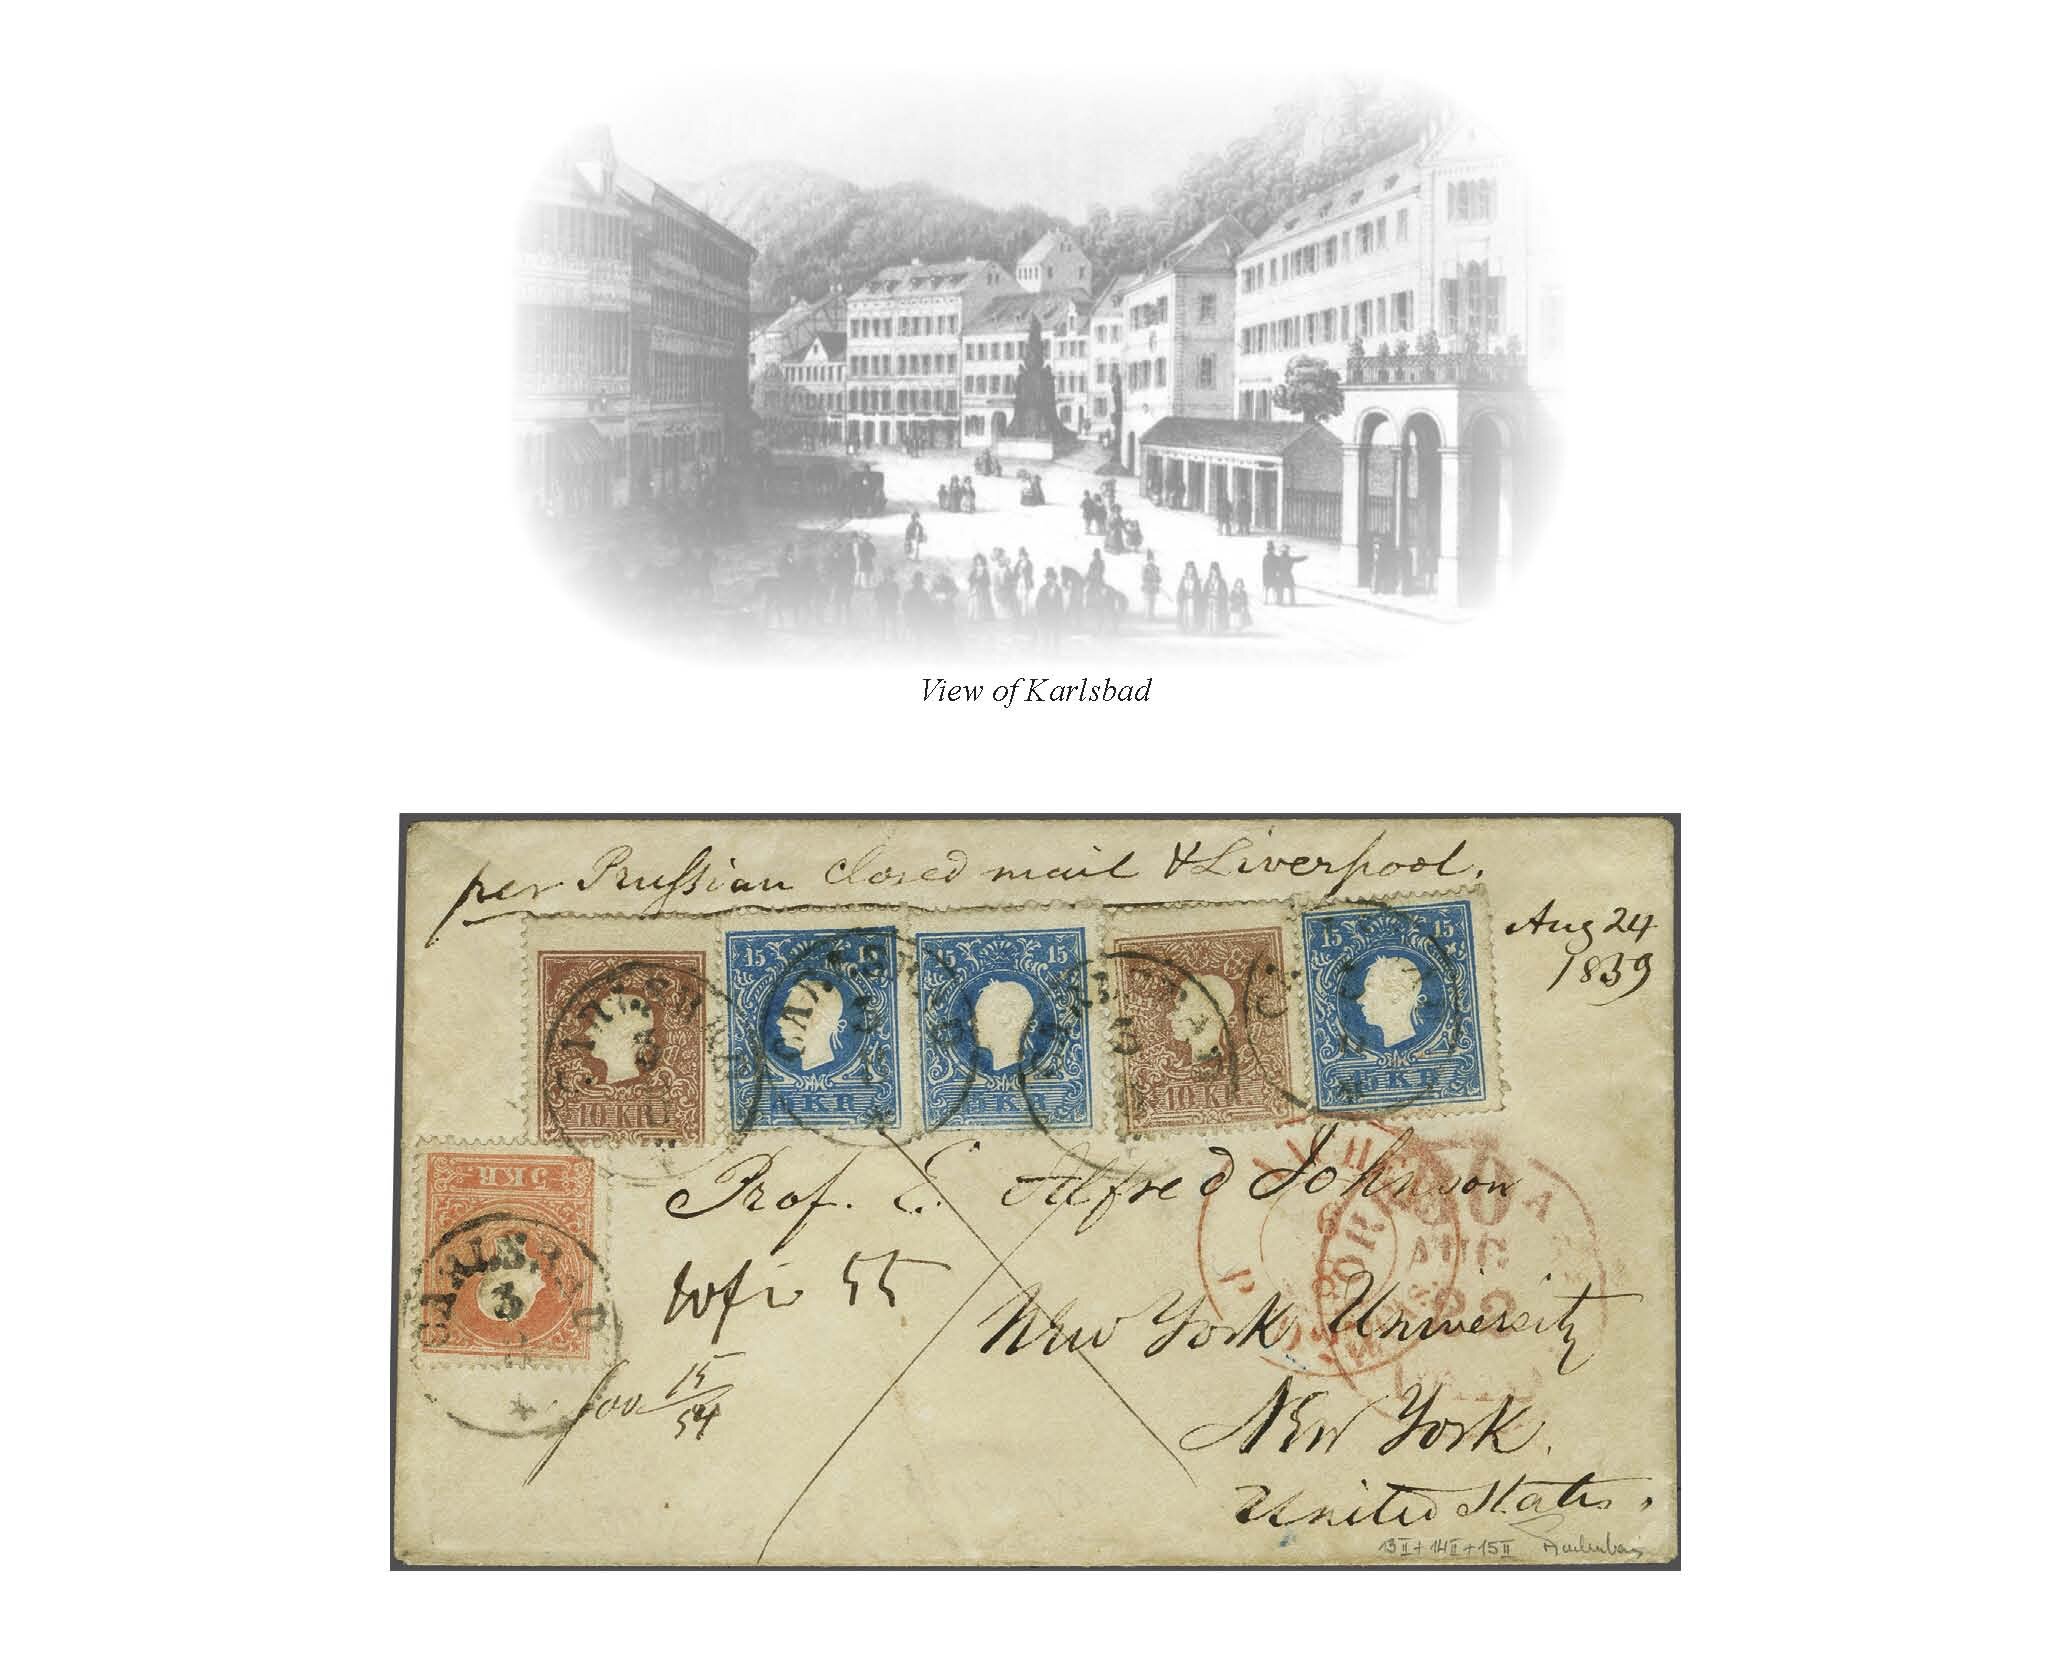 View of Karlsbad
per Prussian closed mail & Liverpool.
Aug 24
1859
15 15
15 15
15
10 KR
15 KR
15 KR
10 KR
15 KR
5 KR
CARLSBAD
3
Prof. E. Alfred Johnson
55
New York University
15
54
New York.
United States.
AACHEN
AUG
13II + 14II + 15II